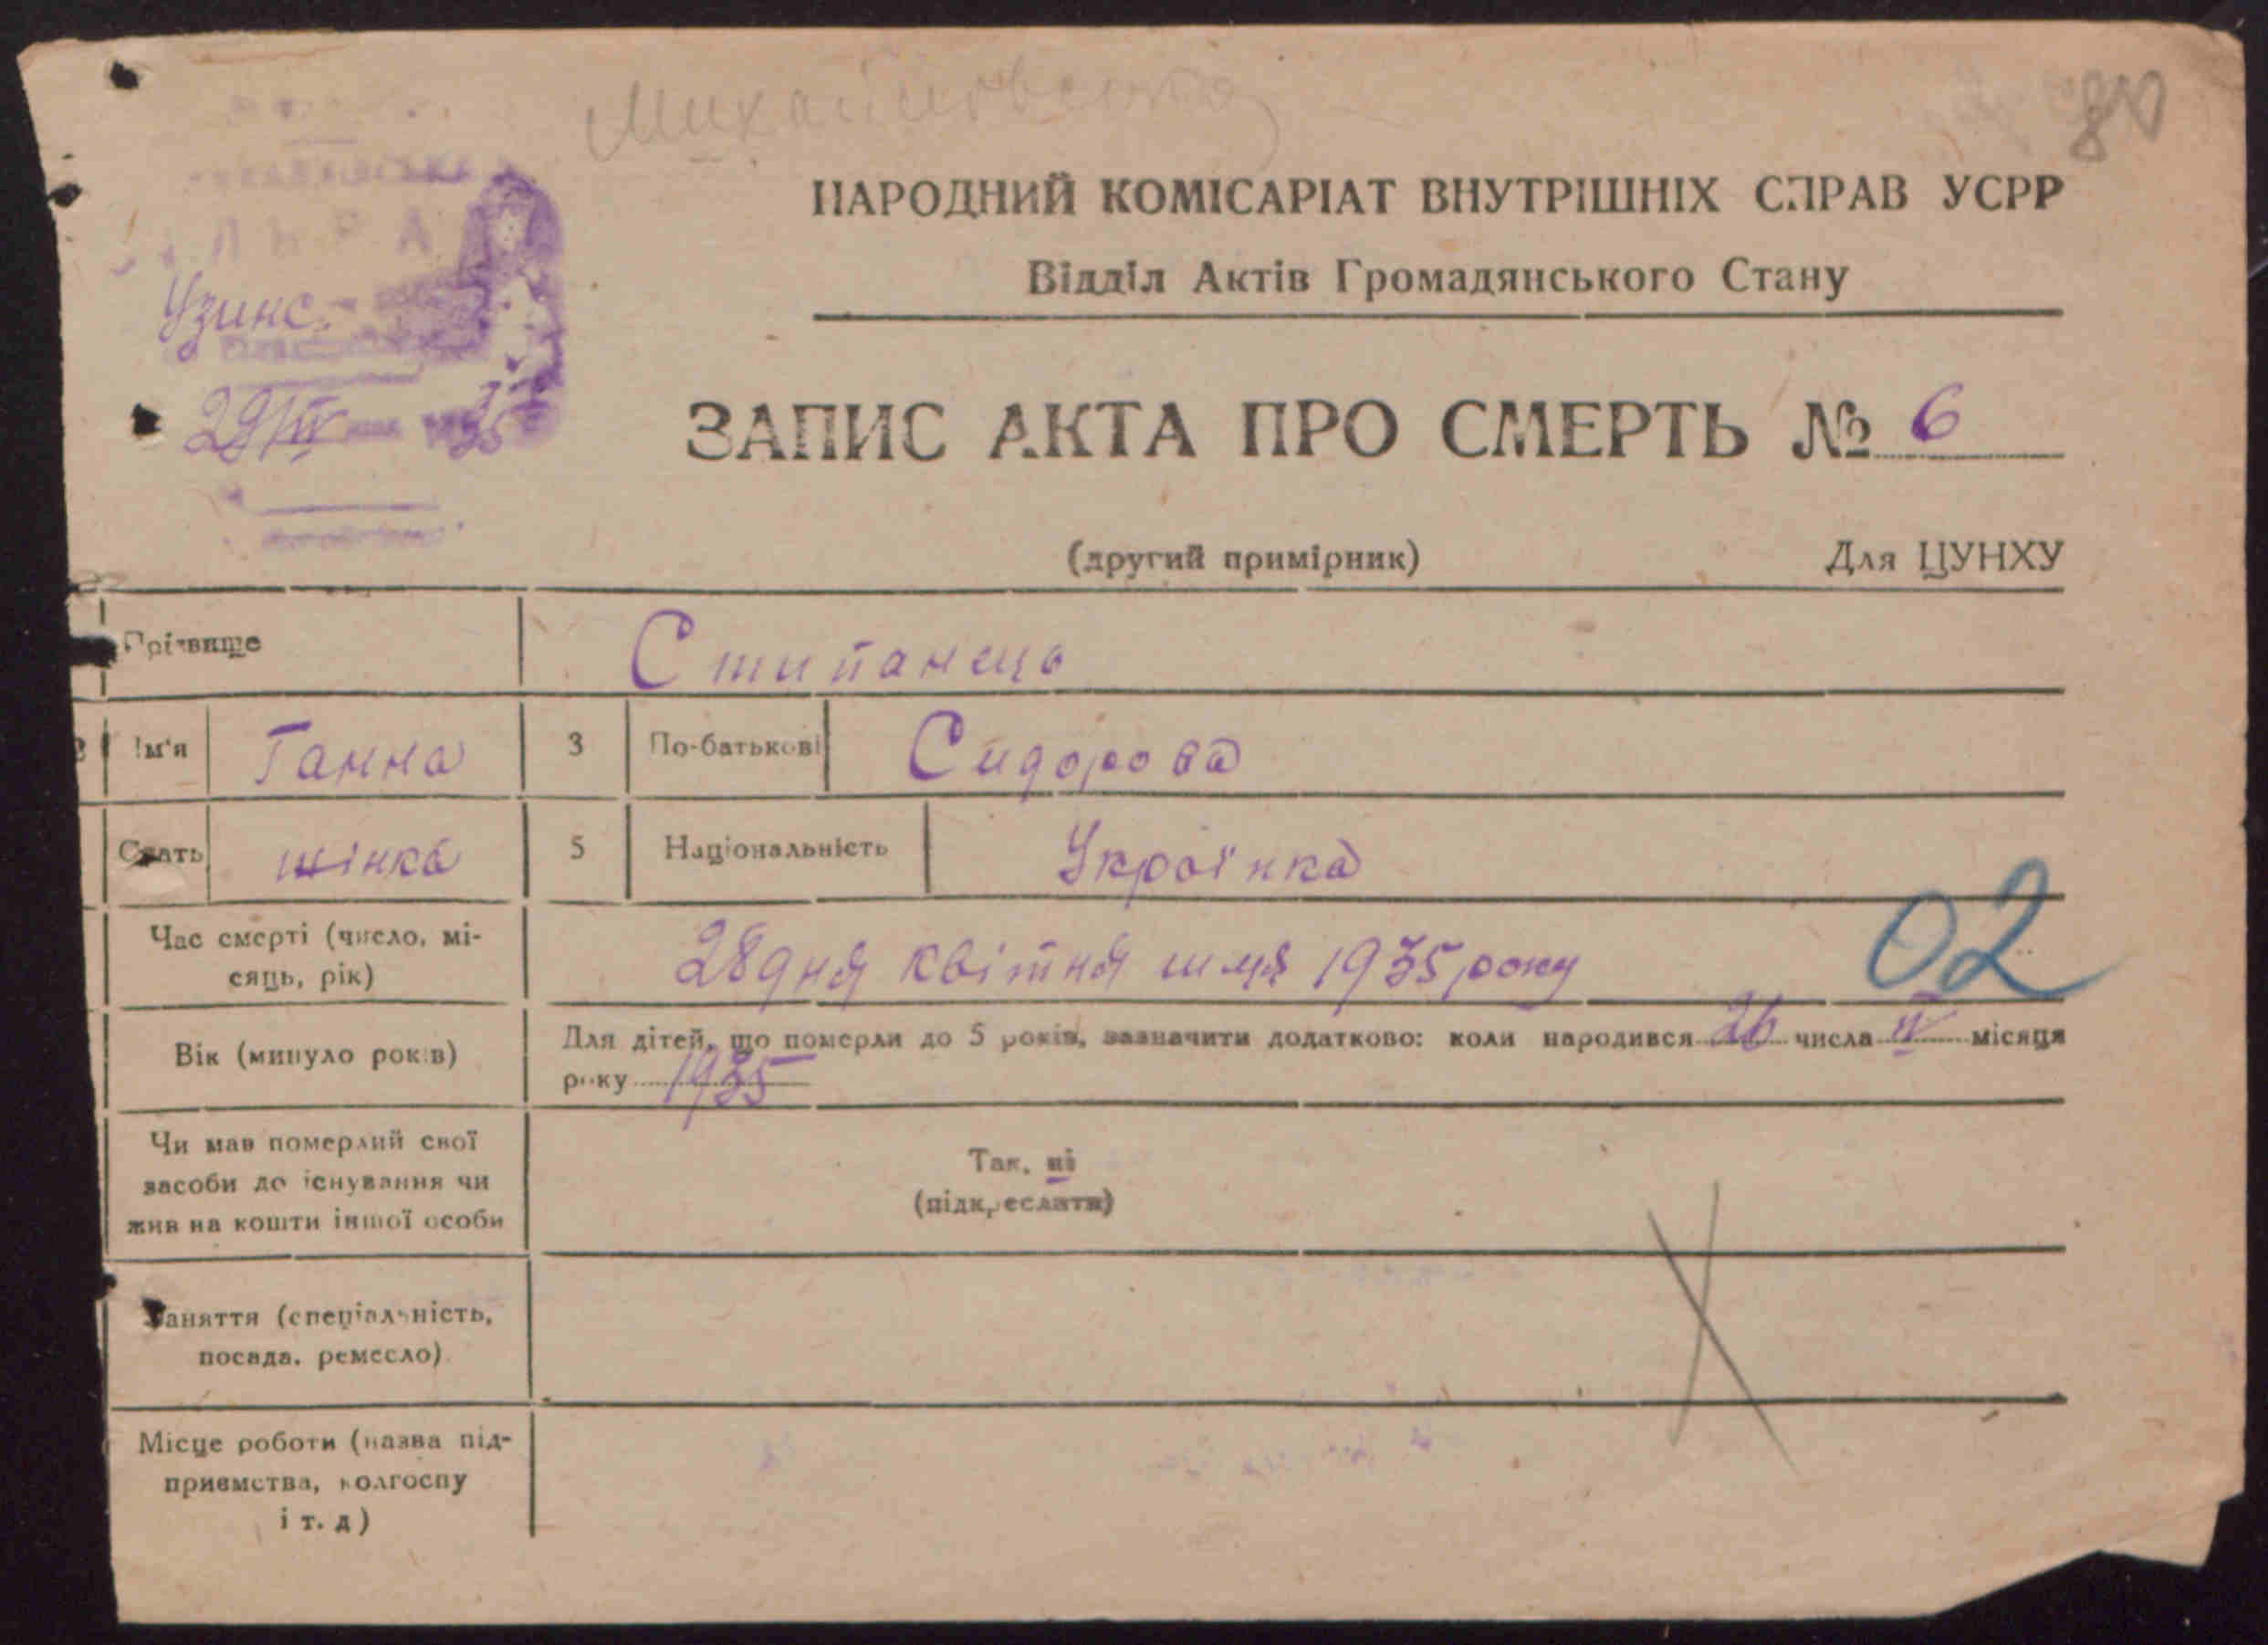 Михайловська
80
НАРОДНИЙ КОМІСАРІАТ ВНУТРІШНІХ СПРАВ УСРР
Відділ Актів Громадянського Стану
Узинс.
29/IV 35
ЗАПИС АКТА ПРО СМЕРТЬ № 6
(другий примірник) Для ЦУНХУ
Прізвище Стипанець
Ім'я Ганна 3 По-батькові Сидорова
Стать жінка 5 Національність Українка
Час смерті (число, мі-
сяць, рік)
28 дня квітня м-ця 1935 року
02
Вік (минуло років)
Для дітей, що померли до 5 років, зазначити додатково: коли народився 26 числа IV місяця
року 1935
Чи мав померлий свої
засоби до існування чи
жив на кошти іншої особи
Так, ні
(підкреслити)
Заняття (спеціальність,
посада, ремесло)
Місце роботи (назва під-
приємства, колгоспу
і т. д)